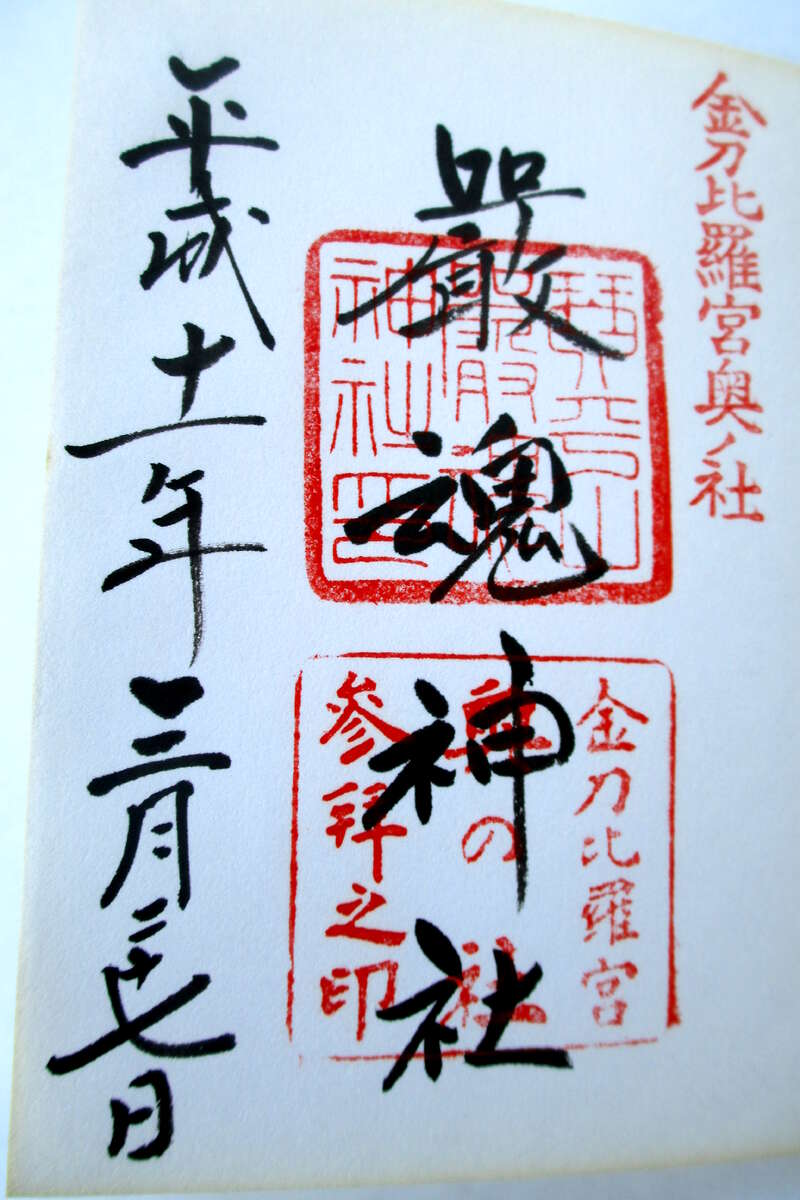 金刀比羅宮奥ノ社
嚴魂神社
琴平山
嚴魂
神社印
金刀比羅宮
奥の社
参拜之印
平成十一年三月二十七日